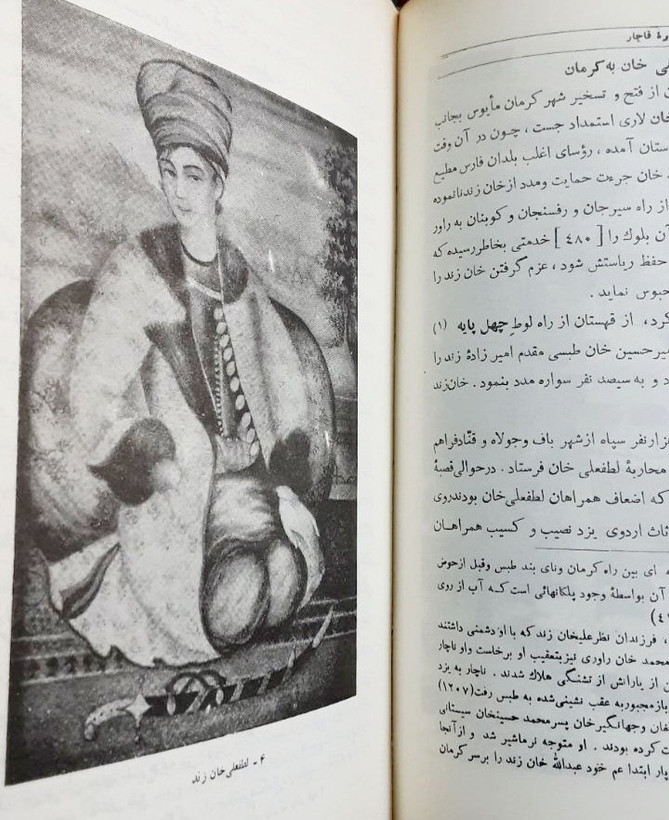 ۴ - لطفعلی خان زند
رهٔ قاجار
خان به کرمان
از فتح و تسخیر شهر کرمان مأیوس بجانب
خان لاری استمداد جست ، چون در آن وقت
ستان آمده ، رؤسای اغلب بلدان فارس مطیع
خان جرءت حمایت ومدد ازخان زندنانموده
از راه سیرجان و رفسنجان و کوبنان به راور
آن بلوك را [ ٤٨٠ ] خدمتی بخاطررسیده که
حفظ ریاستش شود ، عزم گرفتن خان زند را
حبوس نماید .
کرد، از قهستان از راه لوط چهل پایه (۱)
یرحسین خان طبسی مقدم امیر زادهٔ زند را
و به سیصد نفر سواره مدد بنمود . خان‌زند
زارنفر سپاه ازشهر باف وجولاه و قنّادفراهم
محاربهٔ لطفعلی خان فرستاد . درحوالی قصبهٔ
که اضعاف همراهان لطفعلی‌خان بودندروی
ثاث اردوی یزد نصیب و کسیب همراهان
ای بین راه کرمان ونای بند طبس وقبل ازحوض
آن بواسطهٔ وجود پلکانهائی است که آب از روی
، فرزندان نظرعلیخان زند که با اودشمنی داشتند
محمد خان راوری نیزبتعقیب او برخاست واو ناچار
ن از یارانش از تشنگی هلاك شدند . ناچار به یزد
بازمجبوربه عقب نشینی‌شده به طبس رفت(۱۲۰۷)
فان وجهانگیرخان پسرمحمد حسینخان سیستانی
ت کرده بودند . او متوجه نرماشیر شد و ازآنجا
بار ابتدا عم خود عبدالله خان زند را برسر کرمان